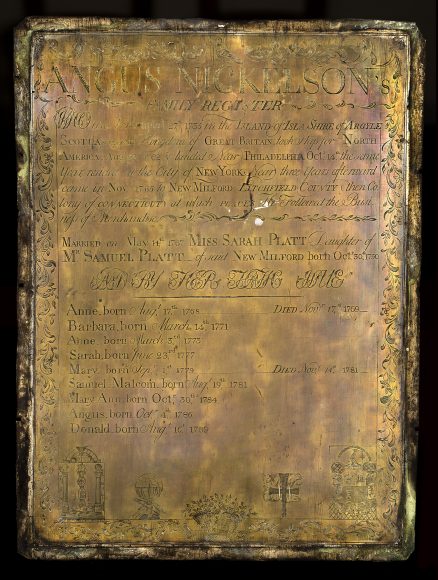 ANGUS NICKELSON's
FAMILY REGISTER
WHO was born April 27, 1735 in the ISLAND of ISLA SHIRE of ARGYLE
SCOTLAND Kingdom of GREAT BRITAIN, took Ship for NORTH
AMERICA, landed Near PHILADELPHIA Oct. 14th the same
Year remov'd to the City of NEW YORK near three Years afterward
came in Nov. 1765 to NEW MILFORD LITCHFIELD COUNTY then Co
lony of CONNECTICUT) at which PLACE He Followed the Busi
ness of Merchandise
MARRIED on May 14th 1767 MISS SARAH PLATT Daughter of
Mr SAMUEL PLATT of said NEW MILFORD born Oct. 30, 1750
AND BY HER HAS ISSUE
Anne, born Aug. 17th 1768 DIED Novr 17th 1769
Barbara, born March 14th 1771
Anne, born March 3rd 1775
Sarah, born June 23rd 1777
Mary, born Sept. 1779 DIED Novr 14th 1781
Samuel Malcom, born Aug. 19th 1781
Mary Ann, born Oct. 30th 1784
Angus, born Oct. 4th 1786
Donald, born Aug. 16th 1789